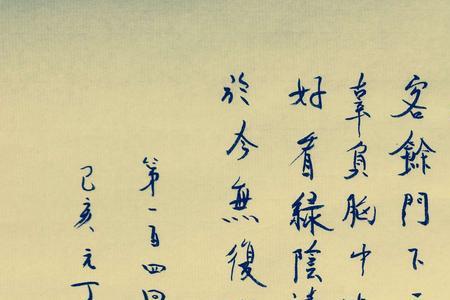 客餘門下
辜負胸中
好看綠陰
於今無復
第一百四回
己亥元丁